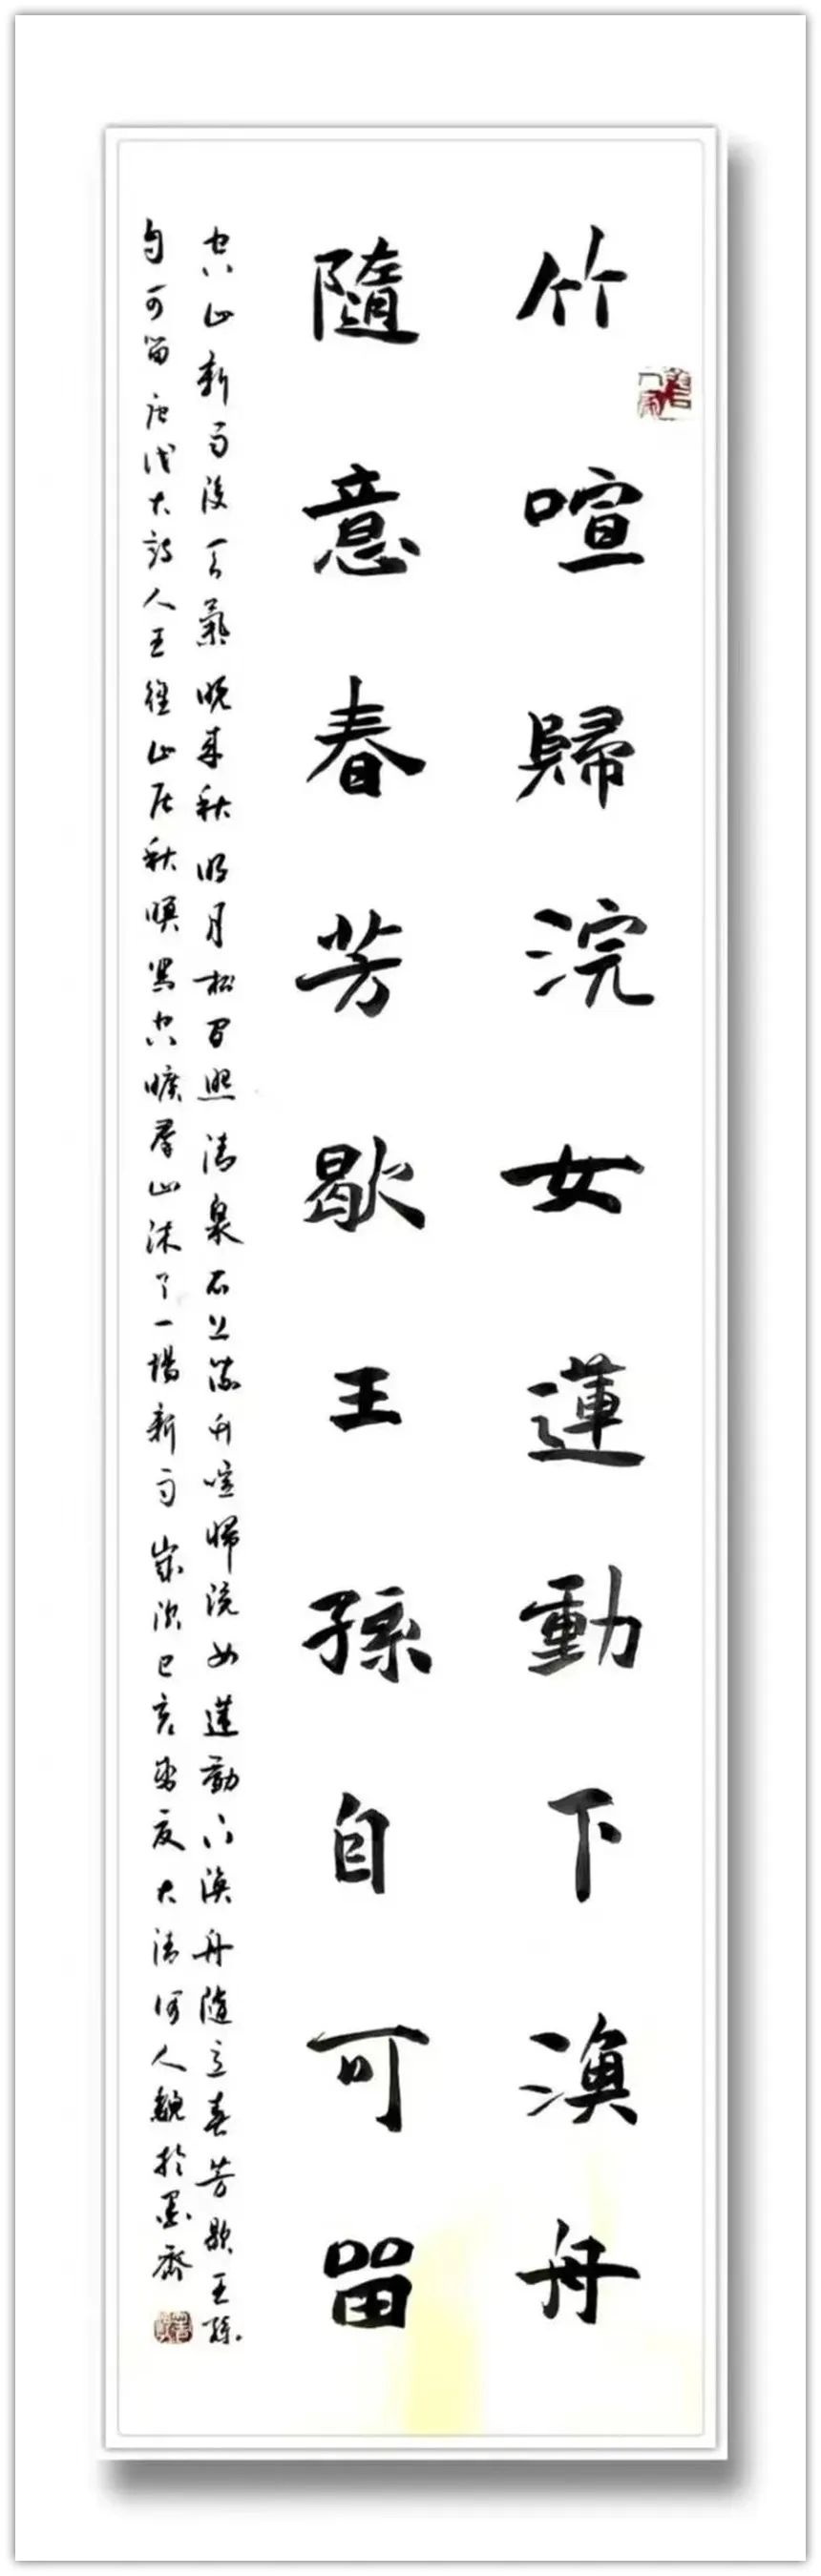 竹喧歸浣女蓮動下漁舟
隨意春芳歇王孫自可留
空山新雨後天氣晚來秋明月松間照清泉石上流竹喧歸浣女蓮動下漁舟隨意春芳歇王孫
自可留唐代大詩人王維山居秋暝寫空曠群山沐了一場新雨歲次己亥年夏大清河人魏於墨齋